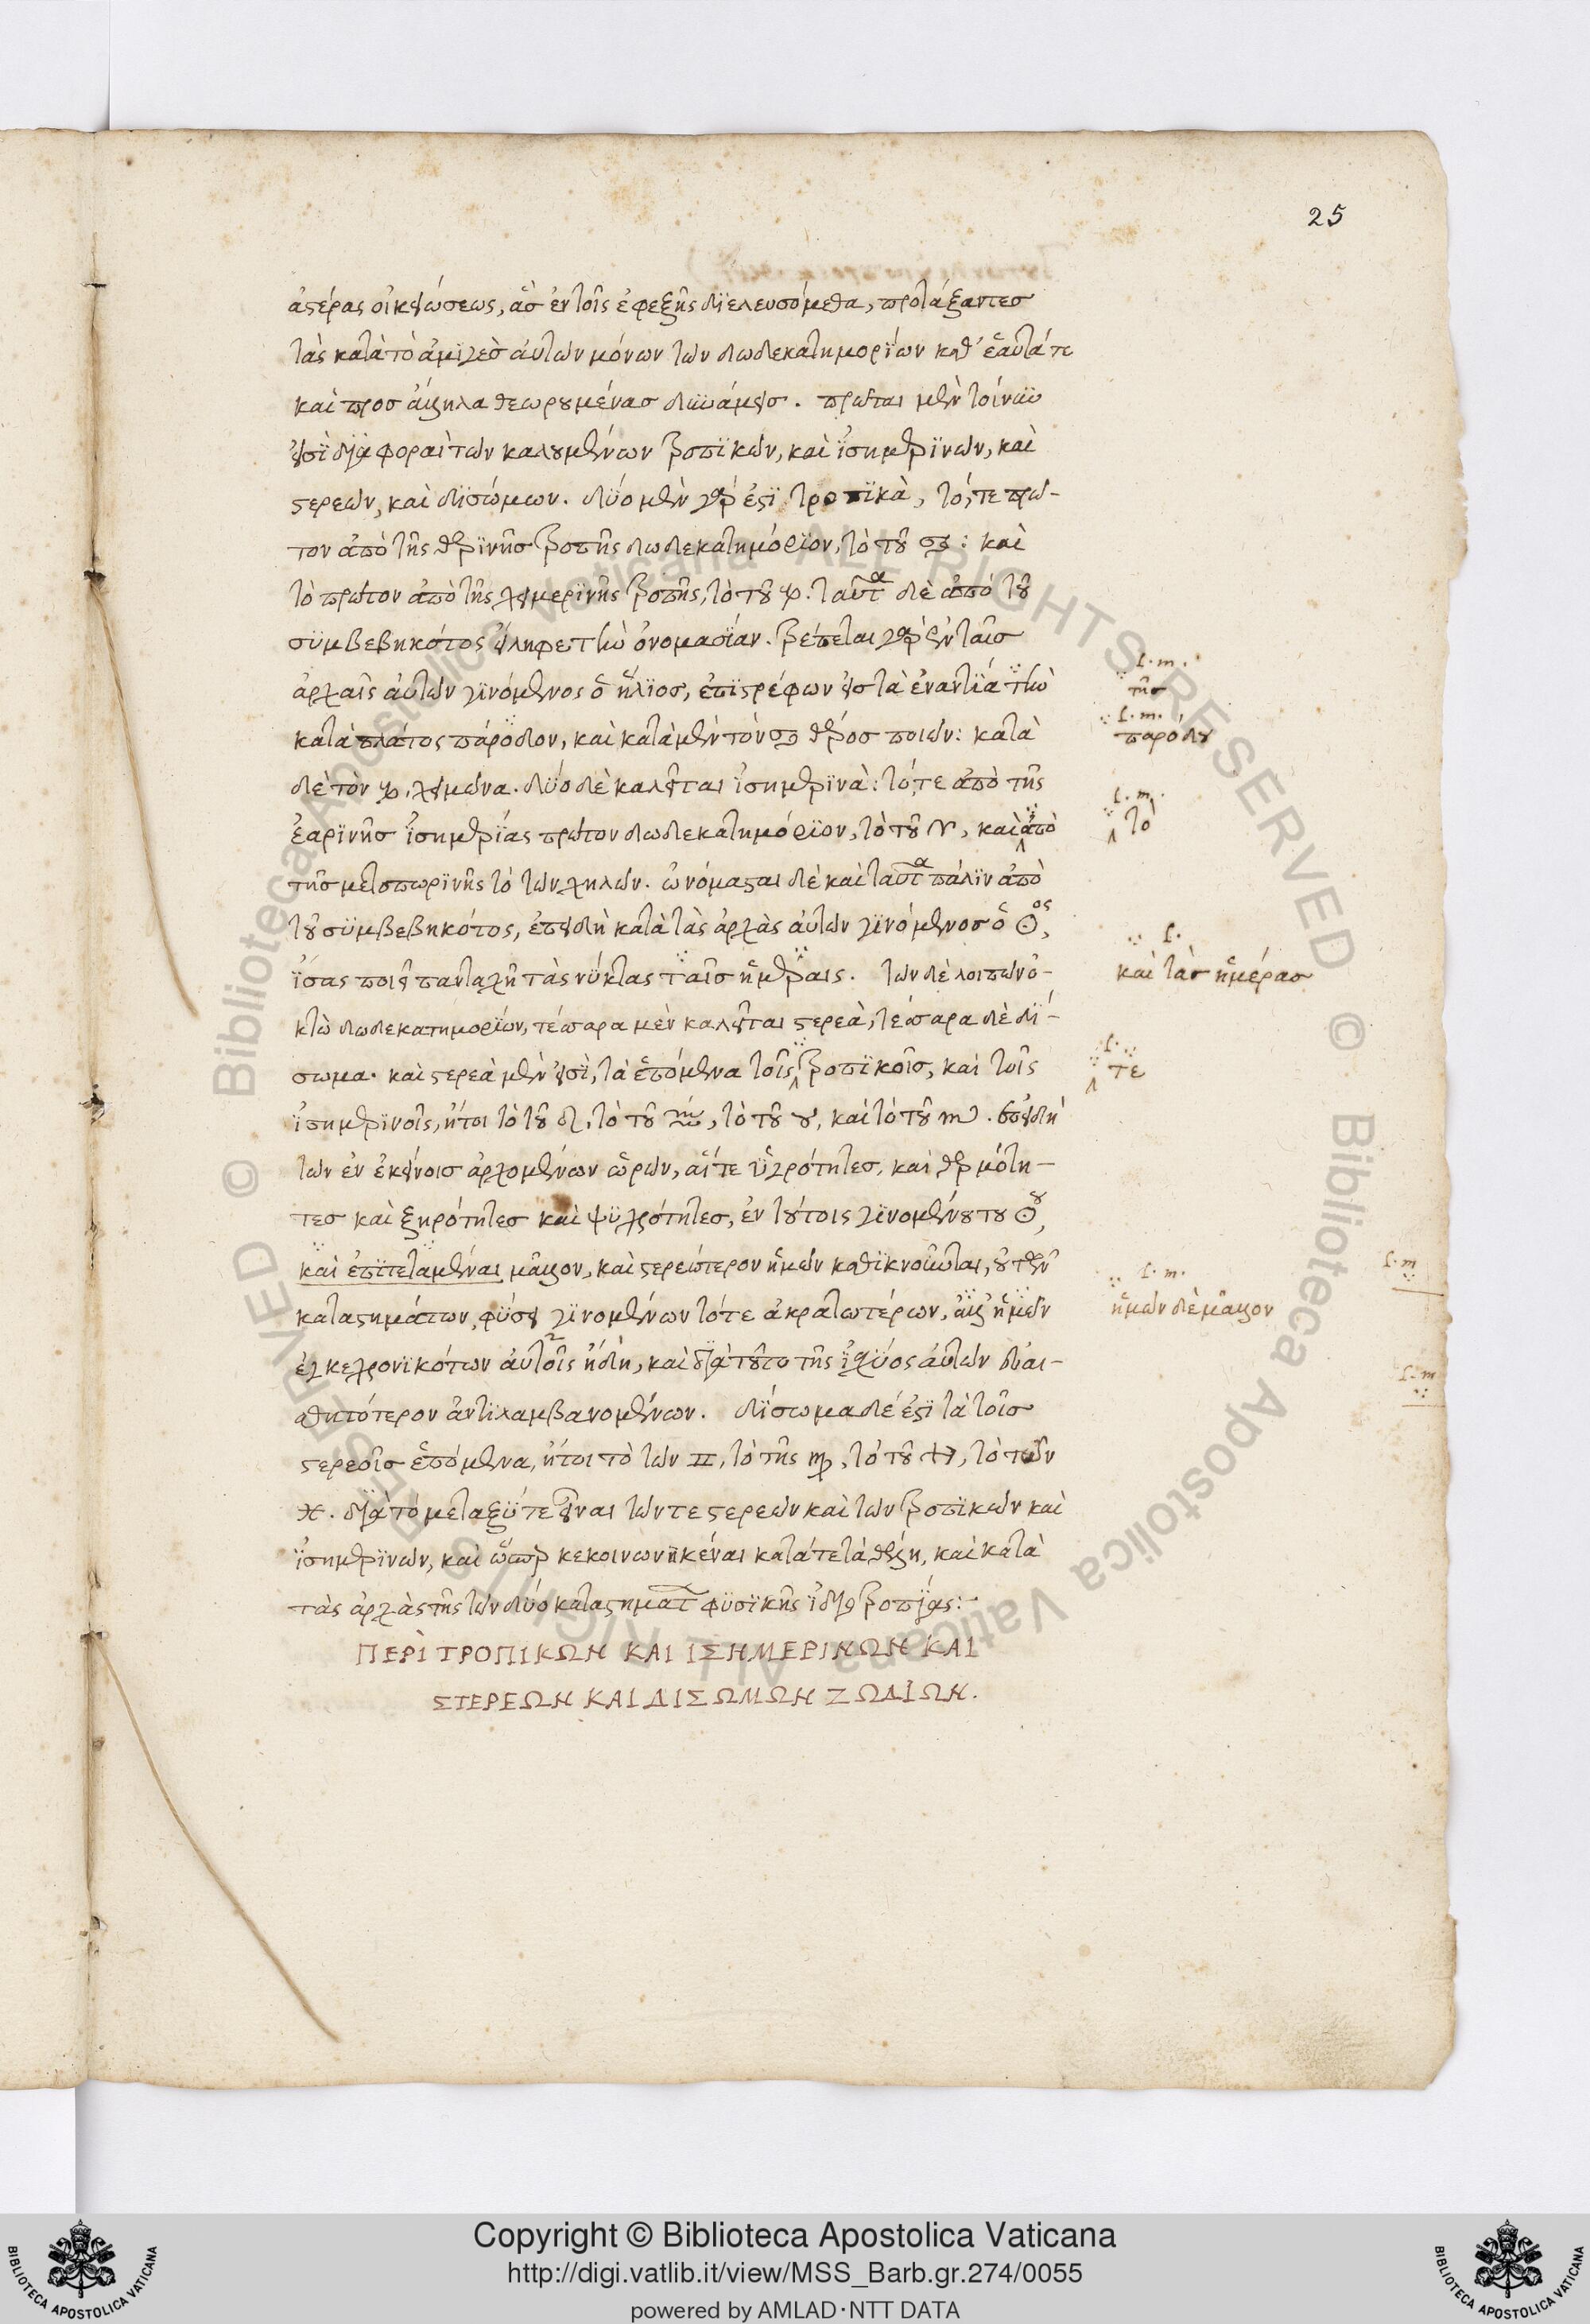 25
ἀστέρας οἰκειώσεως, ἃσ ἐν τοῖς ἐφεξῆς διελευσόμεθα, προτάξαντεσ
τὰς κατὰ τὸ ἀμιγὲσ αὐτῶν μόνων τῶν δωδεκατημορίων καθ' ἑαυτά τε
καὶ προσ ἄλληλα θεωρουμένασ δυνάμεισ. πρῶται μὲν τοίνυν
εἰσὶ διαφοραὶ τῶν καλουμένων τροπικῶν, καὶ ἰσημερινῶν, καὶ
στερεῶν, καὶ δισώμων. δύο μὲν γάρ ἐστι τροπικὰ, τό, τε πρῶ-
τον ἀπὸ τῆς θερινῆσ τροπῆς δωδεκατημόριον, τὸ τοῦ ♋: καὶ
τὸ πρῶτον ἀπὸ τῆς χειμερινῆς τροπῆς, τὸ τοῦ ♑. ταῦτα δὲ ἀπὸ τοῦ
συμβεβηκότος εἴληφε τὴν ὀνομασίαν. τρέπεται γὰρ ἐν ταῖσ
ἀρχαῖς αὐτῶν γινόμενος ὁ ἥλιοσ, ἐπιστρέφων εἰσ τὰ ἐναντία τὴν
κατὰ πλάτος πάροδον, καὶ κατὰ μὲν τὸν ♋ θέροσ ποιῶν: κατὰ
δὲ τὸν ♑, χειμῶνα. δύο δὲ καλεῖται ἰσημερινὰ: τό, τε ἀπὸ τῆς
ἐαρινῆσ ἰσημερίας πρῶτον δωδεκατημόριον, τὸ τοῦ ♈, καὶ ἀπὸ
τῆσ μετοπωρινῆς τὸ τῶν χηλῶν. ὠνόμασται δὲ καὶ ταῦτα πάλιν ἀπὸ
τοῦ συμβεβηκότος, ἐπειδὴ κατὰ τὰς ἀρχὰς αὐτῶν γινόμενοσ ὁ ☉ος,
ἴσας ποιεῖ πανταχῆ τὰς νύκτας ταῖσ ἡμέραις. τῶν δὲ λοιπῶν ὀ-
κτὼ δωδεκατημορίων, τέσσαρα μὲν καλεῖται στερεὰ, τέσσαρα δὲ δί-
σωμα. καὶ στερεὰ μὲν εἰσὶ, τὰ ἑπόμενα τοῖς τροπικοῖσ, καὶ τοῖς
ἰσημερινοῖς, ἤτοι τὸ τοῦ ♌, τὸ τοῦ ♒, τὸ τοῦ ♉, καὶ τὸ τοῦ ♏. ἐπειδὴ
τῶν ἐν ἐκείνοισ ἀρχομένων ὡρῶν, αἵτε ὑγρότητεσ, καὶ θερμότη-
τεσ καὶ ξηρότητεσ καὶ ψυχρότητεσ, ἐν τούτοις γινομένου του ☉ου,
καὶ ἐπιτεταμέναι μᾶλλον, καὶ στερεώτερον ἡμῶν καθικνοῦνται, οὐ τῶν
καταστημάτων φύσει γινομένων τότε ἀκρατωτέρων, ἀλλ' ἡμῶν
ἐγκεχρονικότων αὐτοῖς ἤδη, καὶ διὰ τοῦτο τῆς ἰσχύος αὐτῶν εὐαι-
σθητότερον ἀντιλαμβανομένων. δίσωμα δέ ἐστι τὰ τοῖσ
στερεοῖσ ἑπόμενα, ἤτοι τὸ τῶν ♊, τὸ τῆς ♍, τὸ τοῦ ♐, τὸ τῶν
♓. διὰ τὸ μεταξύ τε εἶναι τῶν τε στερεῶν καὶ τῶν τροπικῶν καὶ
ἰσημερινῶν, καὶ ὥσπερ κεκοινωνηκέναι κατά τε τὰ τέλη, καὶ κατὰ
τὰς ἀρχὰς τῆς τῶν δύο καταστημάτων φυσικῆς ἰδιοτροπίας:
ΠΕΡῚ ΤΡΟΠΙΚΩΝ ΚΑΙ ΙΣΗΜΕΡΙΝΩΝ ΚΑΙ
ΣΤΕΡΕΩΝ ΚΑΙ ΔΙΣΩΜΩΝ ΖΩΔΙΩΝ.
f. m.
τῆσ
f. m.
παρόδου
f. m.
τὸ
f.
καὶ τὰσ ἡμέρασ
f.
τε
f. m.
ἡμῶν δὲ μᾶλλον
f. m
f. m
© Biblioteca Apostolica Vaticana ALL RIGHTS RESERVED
© Biblioteca Apostolica Vaticana ALL RIGHTS RESERVED
Copyright © Biblioteca Apostolica Vaticana
http://digi.vatlib.it/view/MSS_Barb.gr.274/0055
powered by AMLAD·NTT DATA
BIBLIOTECA APOSTOLICA VATICANA
BIBLIOTECA APOSTOLICA VATICANA